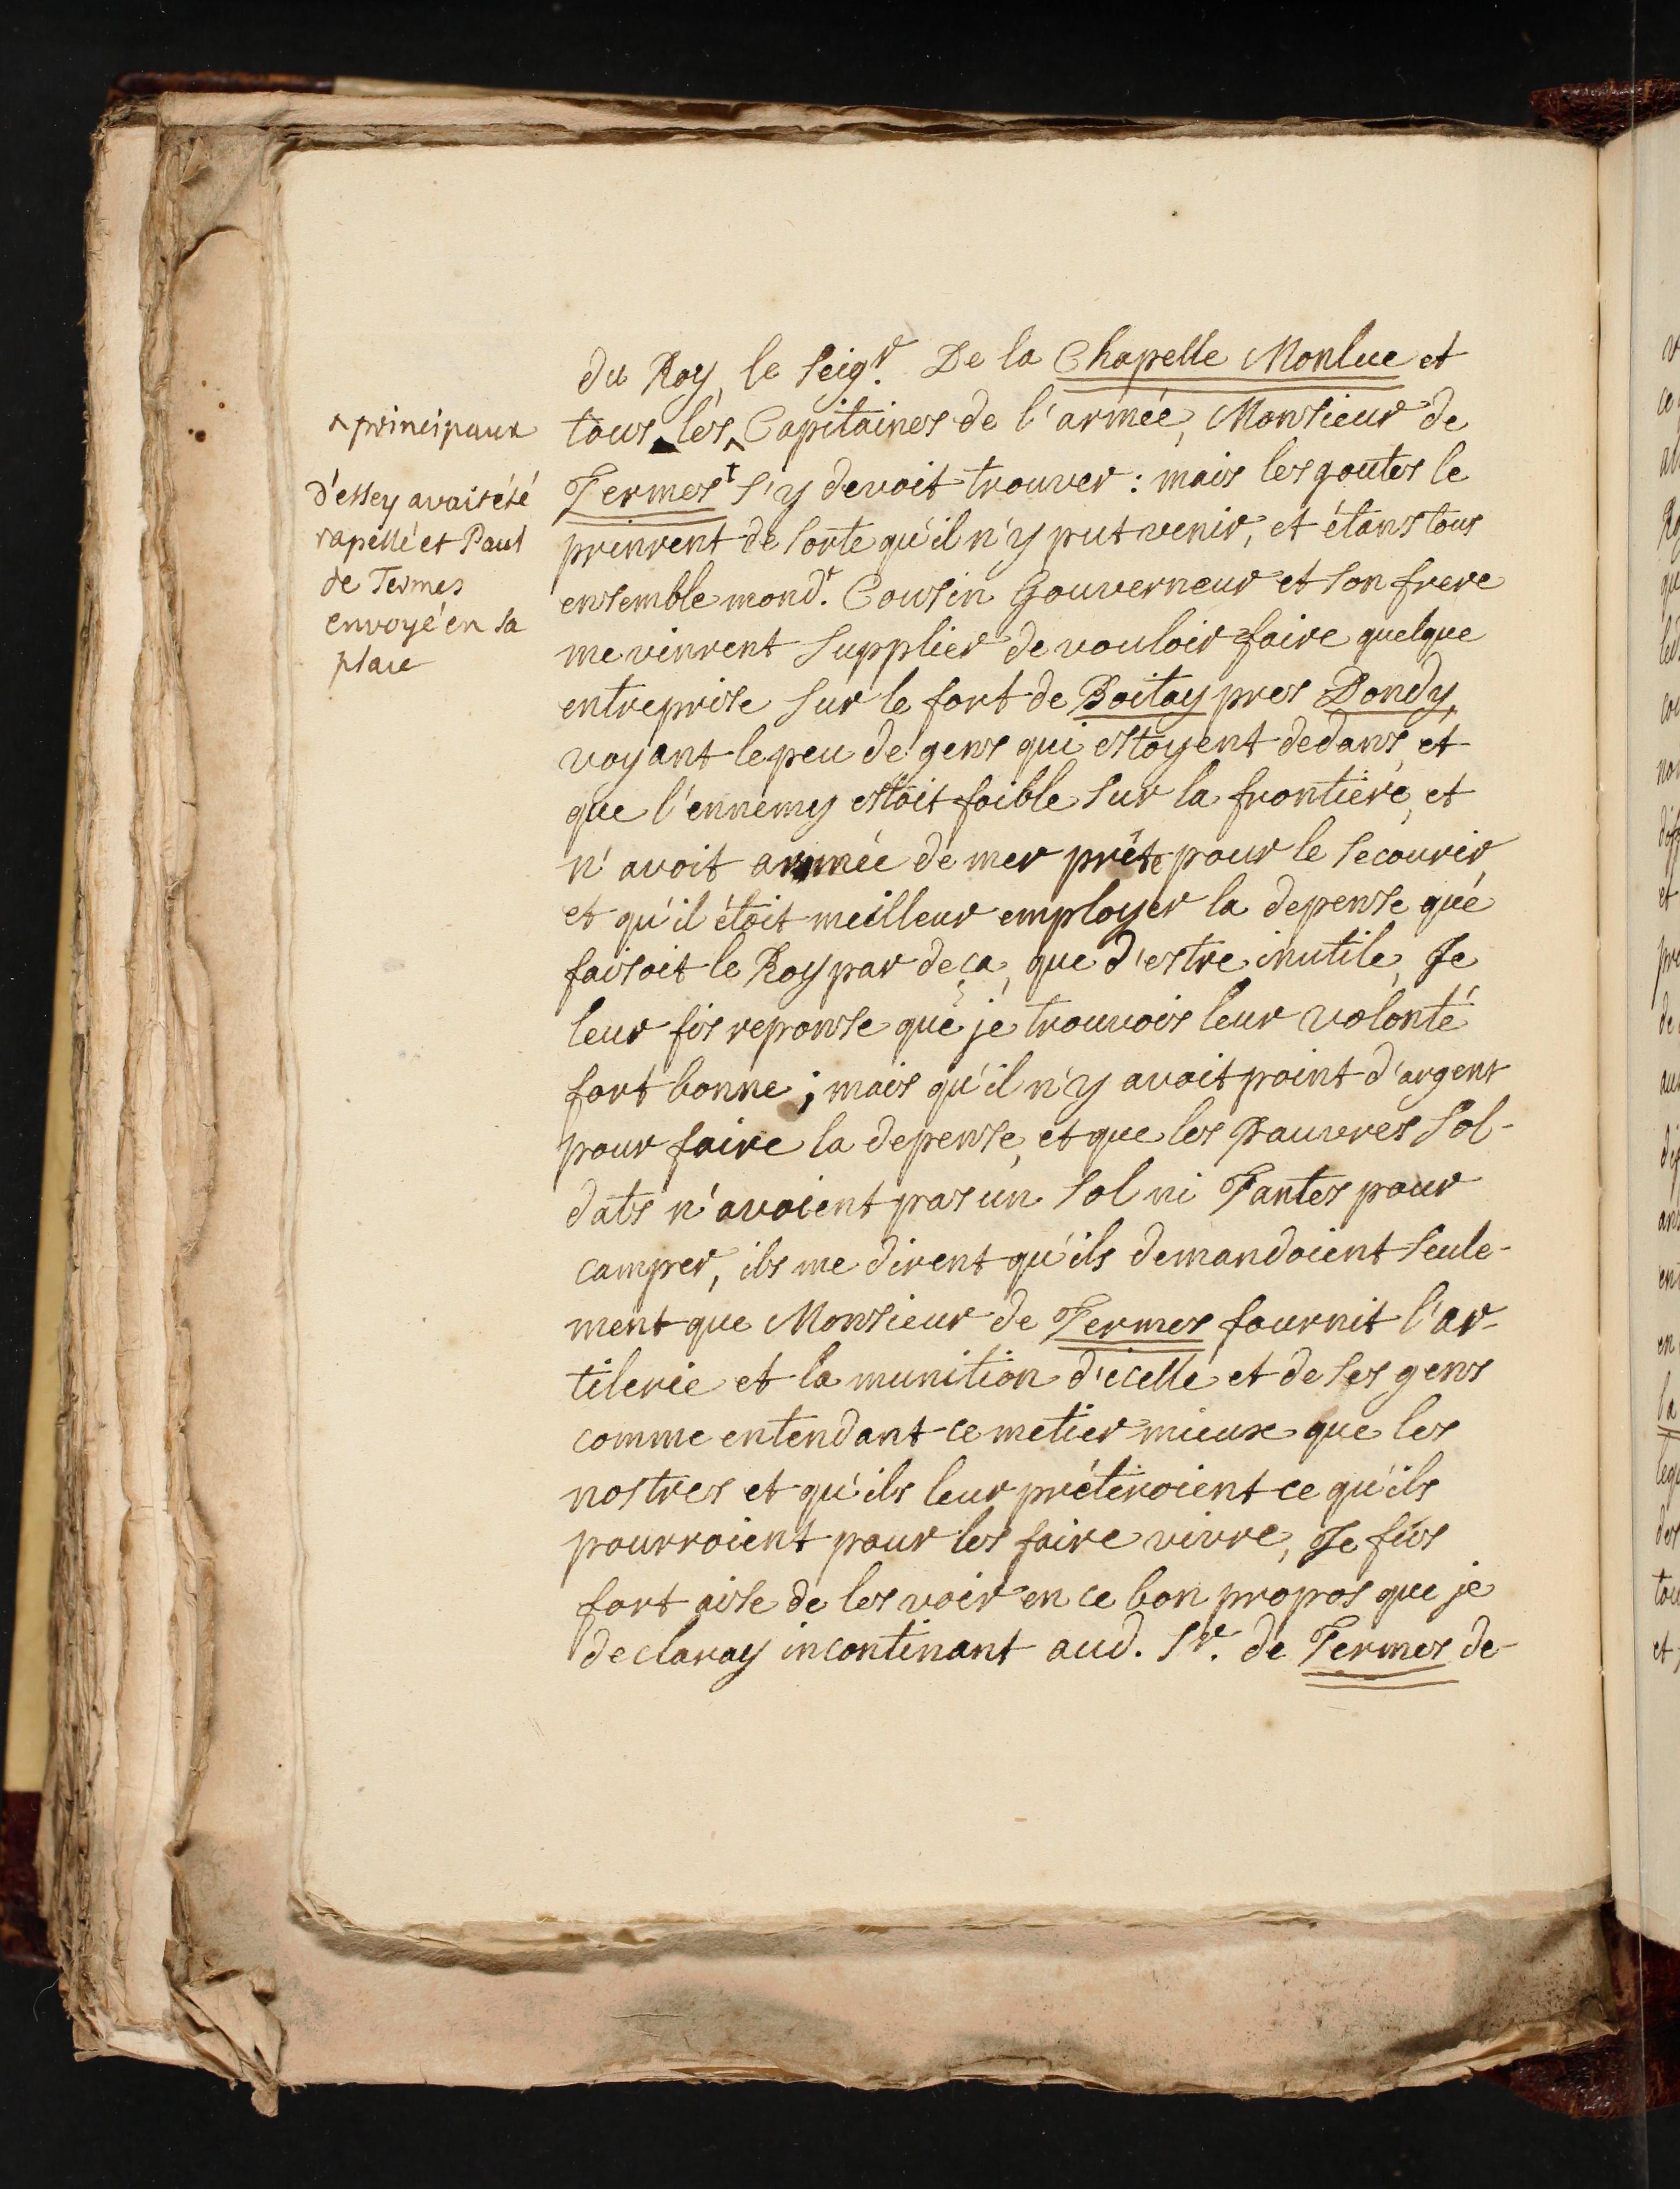 du Roy, le Seigr. De la Chapelle Monluc et
^ principaux
tous les ^ Capitaines de l'armée, Monsieur de
Termes † s'y devoit trouver : mais les goutes le
prinrent de sorte qu'il n'y put venir, et étans tous
ensemble mond. Cousin Gouverneur et son frere
me vinrent supplier de vouloir faire quelque
entreprise sur le fort de Boitay pres Dondy,
voyant le peu de gens qui estoyent dedans, et
que l'ennemy estoit foible sur la frontiere, et
n'avoit armée de mer prête pour le secourir,
et qu'il étoit meilleur employer la depense que
faisoit le Roy par deça, que d'estre inutile, Je
leur fis reponse que je trouvois leur volonté
fort bonne ; mais qu'il n'y avoit point d'argent
pour faire la depense, et que les Pauvres Sol-
dats n'avoient pas un sol ni Tantes pour
camper, ils me dirent qu'ils demandoient seule-
ment que Monsieur de Termes fournit l'ar-
tilerie et la munition d'icelle et de ses gens
comme entendant ce metier mieux que les
nostres et qu'ils leur préteroient ce qu'ils
pourroient pour les faire vivre, Je fus
fort aise de les voir en ce bon propos que je
declaray incontinant aud. Sr. de Termes de-
d'essey avait été
rapellé et Paul
de Termes
envoyé en sa
place